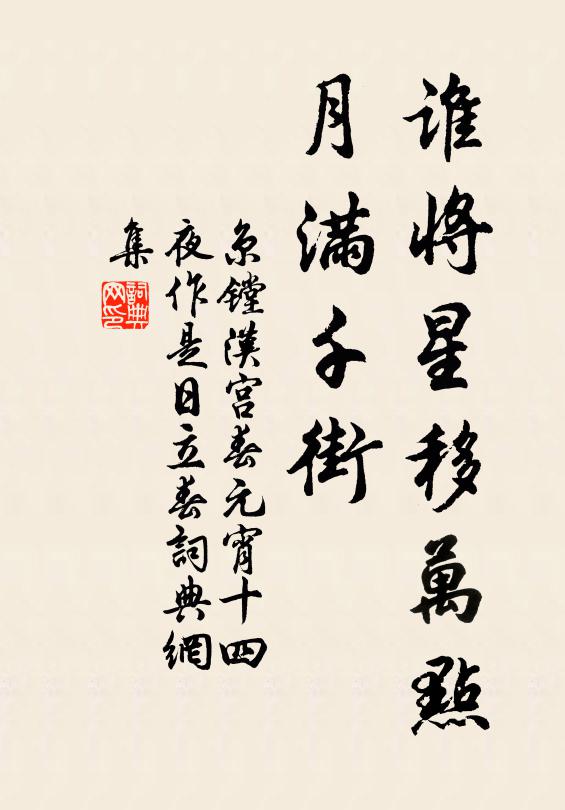 谁將星移萬點
月滿千街
京鏜漢宮春元宵十四
夜作是日立春詞典網
集
詞典
网印